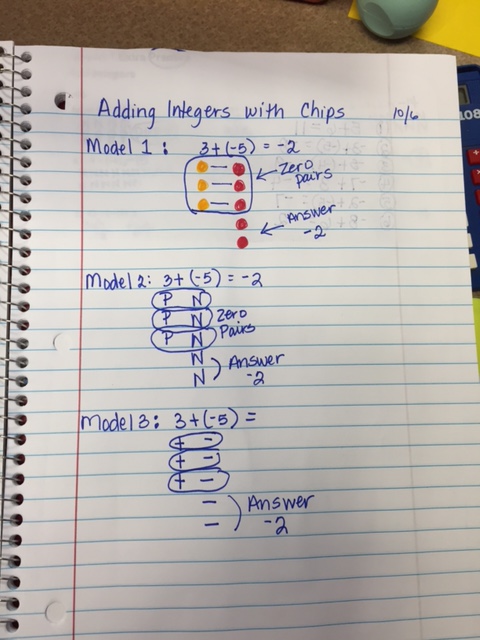 Adding Integers with Chips 10/6
Model 1: 3+(-5) = -2
Zero
pairs
Answer
-2
Model 2: 3+(-5) = -2
P N
P N Zero
P N Pairs
N Answer
N -2
Model 3: 3+(-5) =
+ -
+ -
+ -
- Answer
- -2
108